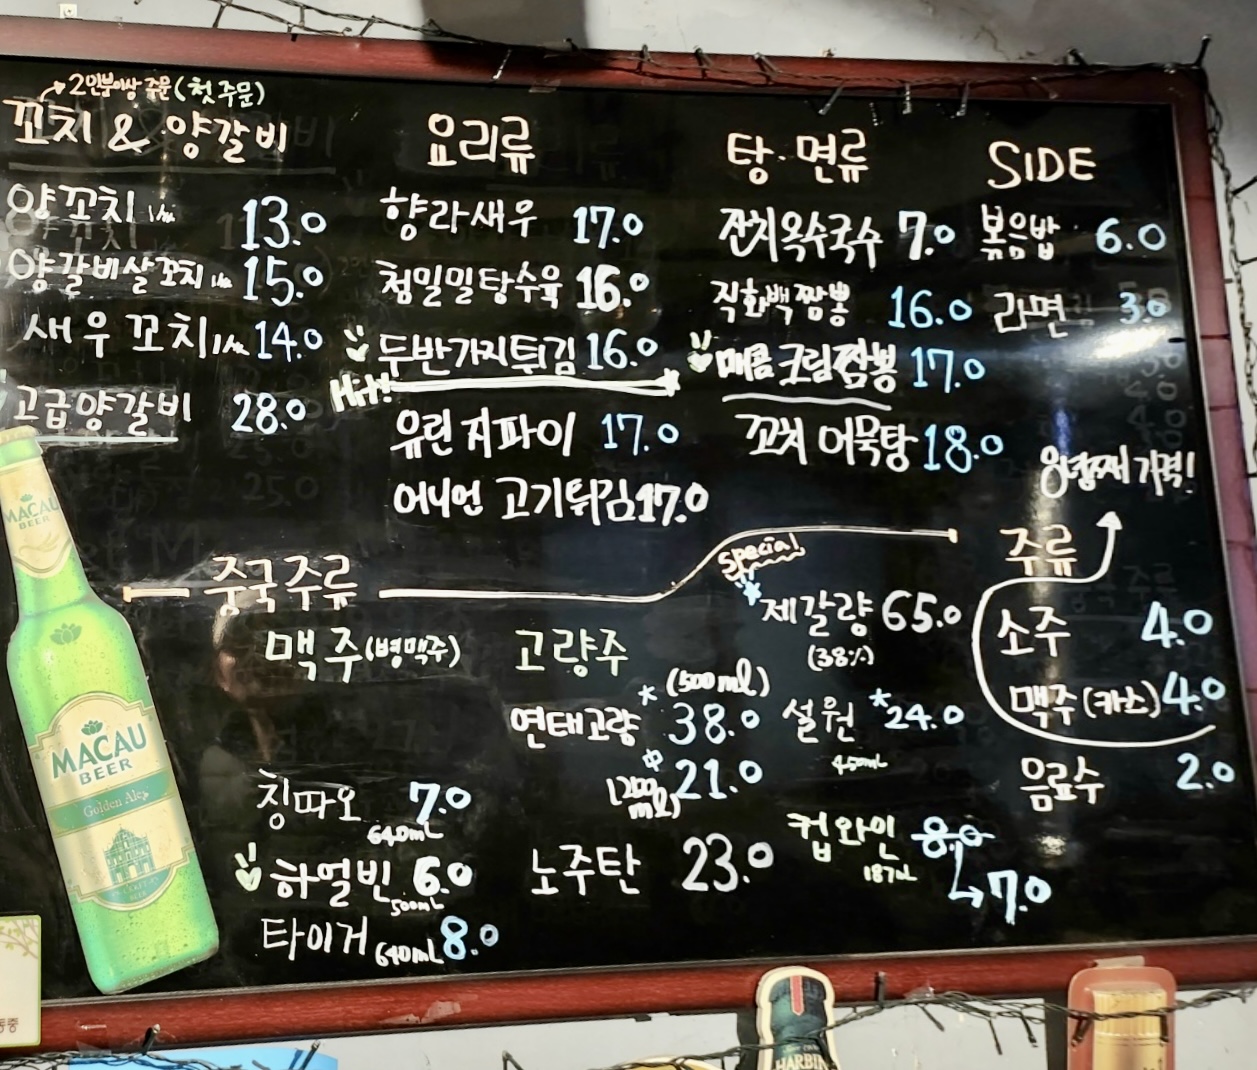 2인분이상 주문(첫 주문)
꼬치 & 양갈비
양꼬치 13.0
양갈비살꼬치 15.0
새우 꼬치 14.0
고급양갈비 28.0
요리류
향라새우 17.0
청밀밀탕수육 16.0
두반가지튀김 16.0
Hit!
유린 지파이 17.0
어니언 고기튀김 17.0
탕·면류
잔치옥수국수 7.0
직화백짬뽕 16.0
매콤크림짬뽕 17.0
꼬치 어묵탕 18.0
SIDE
볶음밥 6.0
라면 3.0
8년째 가격!
주류
소주 4.0
맥주(카스) 4.0
음료수 2.0
중국주류
맥주(병맥주)
칭따오 7.0
640mL
하얼빈 6.0
500mL
타이거 640mL 8.0
고량주
(500ml)
연태고량 38.0
(200ml) 21.0
노주탄 23.0
special
제갈량 65.0
(38%)
설원 24.0
450mL
컵와인 8.0
187mL
7.0
MACAU
BEER
MACAU
BEER
Golden Ale
HARBIN